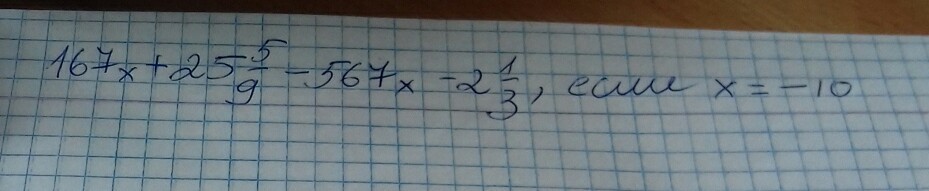 167x + 25 5/9 - 567x - 2 1/3, если x = -10